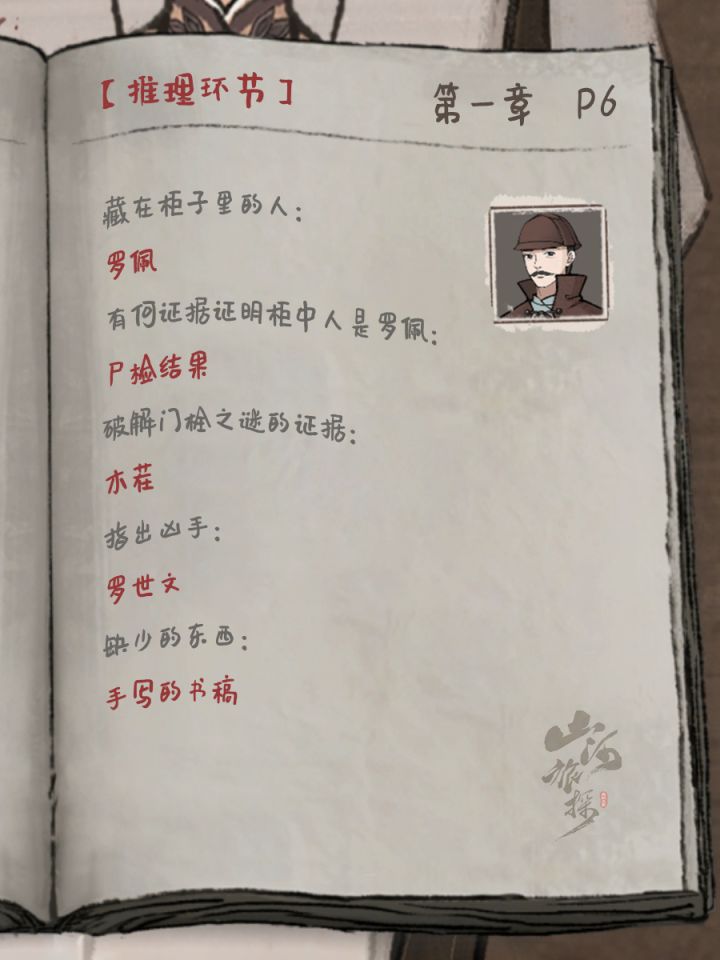 【推理环节】
第一章 P6
藏在柜子里的人：
罗佩
有何证据证明柜中人是罗佩：
尸检结果
破解门栓之谜的证据：
木茬
指出凶手：
罗世文
缺少的东西：
手写的书稿
山河旅探